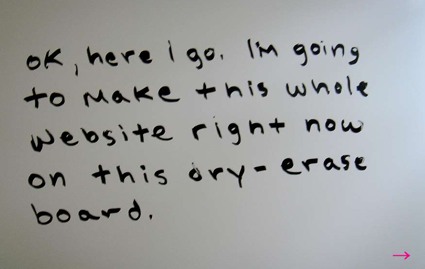 OK, here I go. I'm going
to make this whole
website right now
on this dry-erase
board.
→